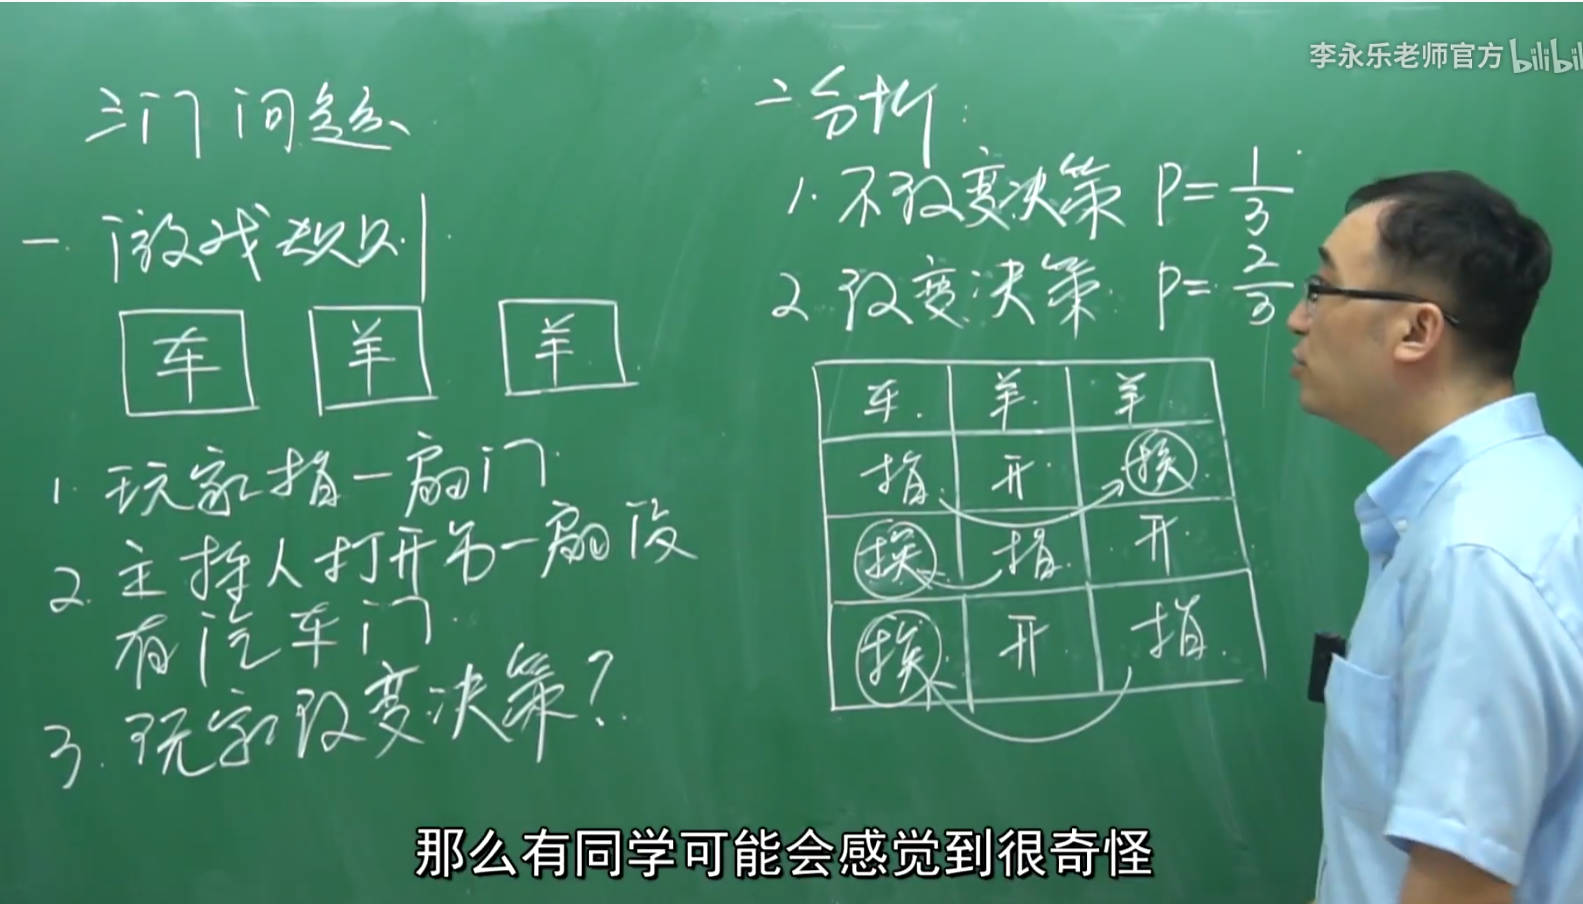 李永乐老师官方 bilibili
三门问题
一. 游戏规则
车 羊 羊
1. 玩家指一扇门
2. 主持人打开另一扇没
有汽车门
3. 玩家改变决策？
二 分析：
1. 不改变决策 P=1/3
2. 改变决策 P=2/3
车 羊 羊
指 开 换
换 指 开
换 开 指
那么有同学可能会感觉到很奇怪